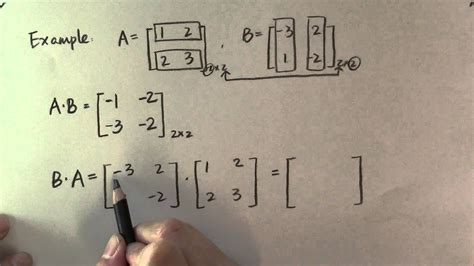 Example: A = [ 1 2 ; 2 3 ] 2×2 . B = [ -3 2 ; 1 -2 ] 2×2
A·B = [ -1 -2 ; -3 -2 ] 2×2
B·A = [ -3 2 ; -2 ] · [ 1 2 ; 2 3 ] = [ ]